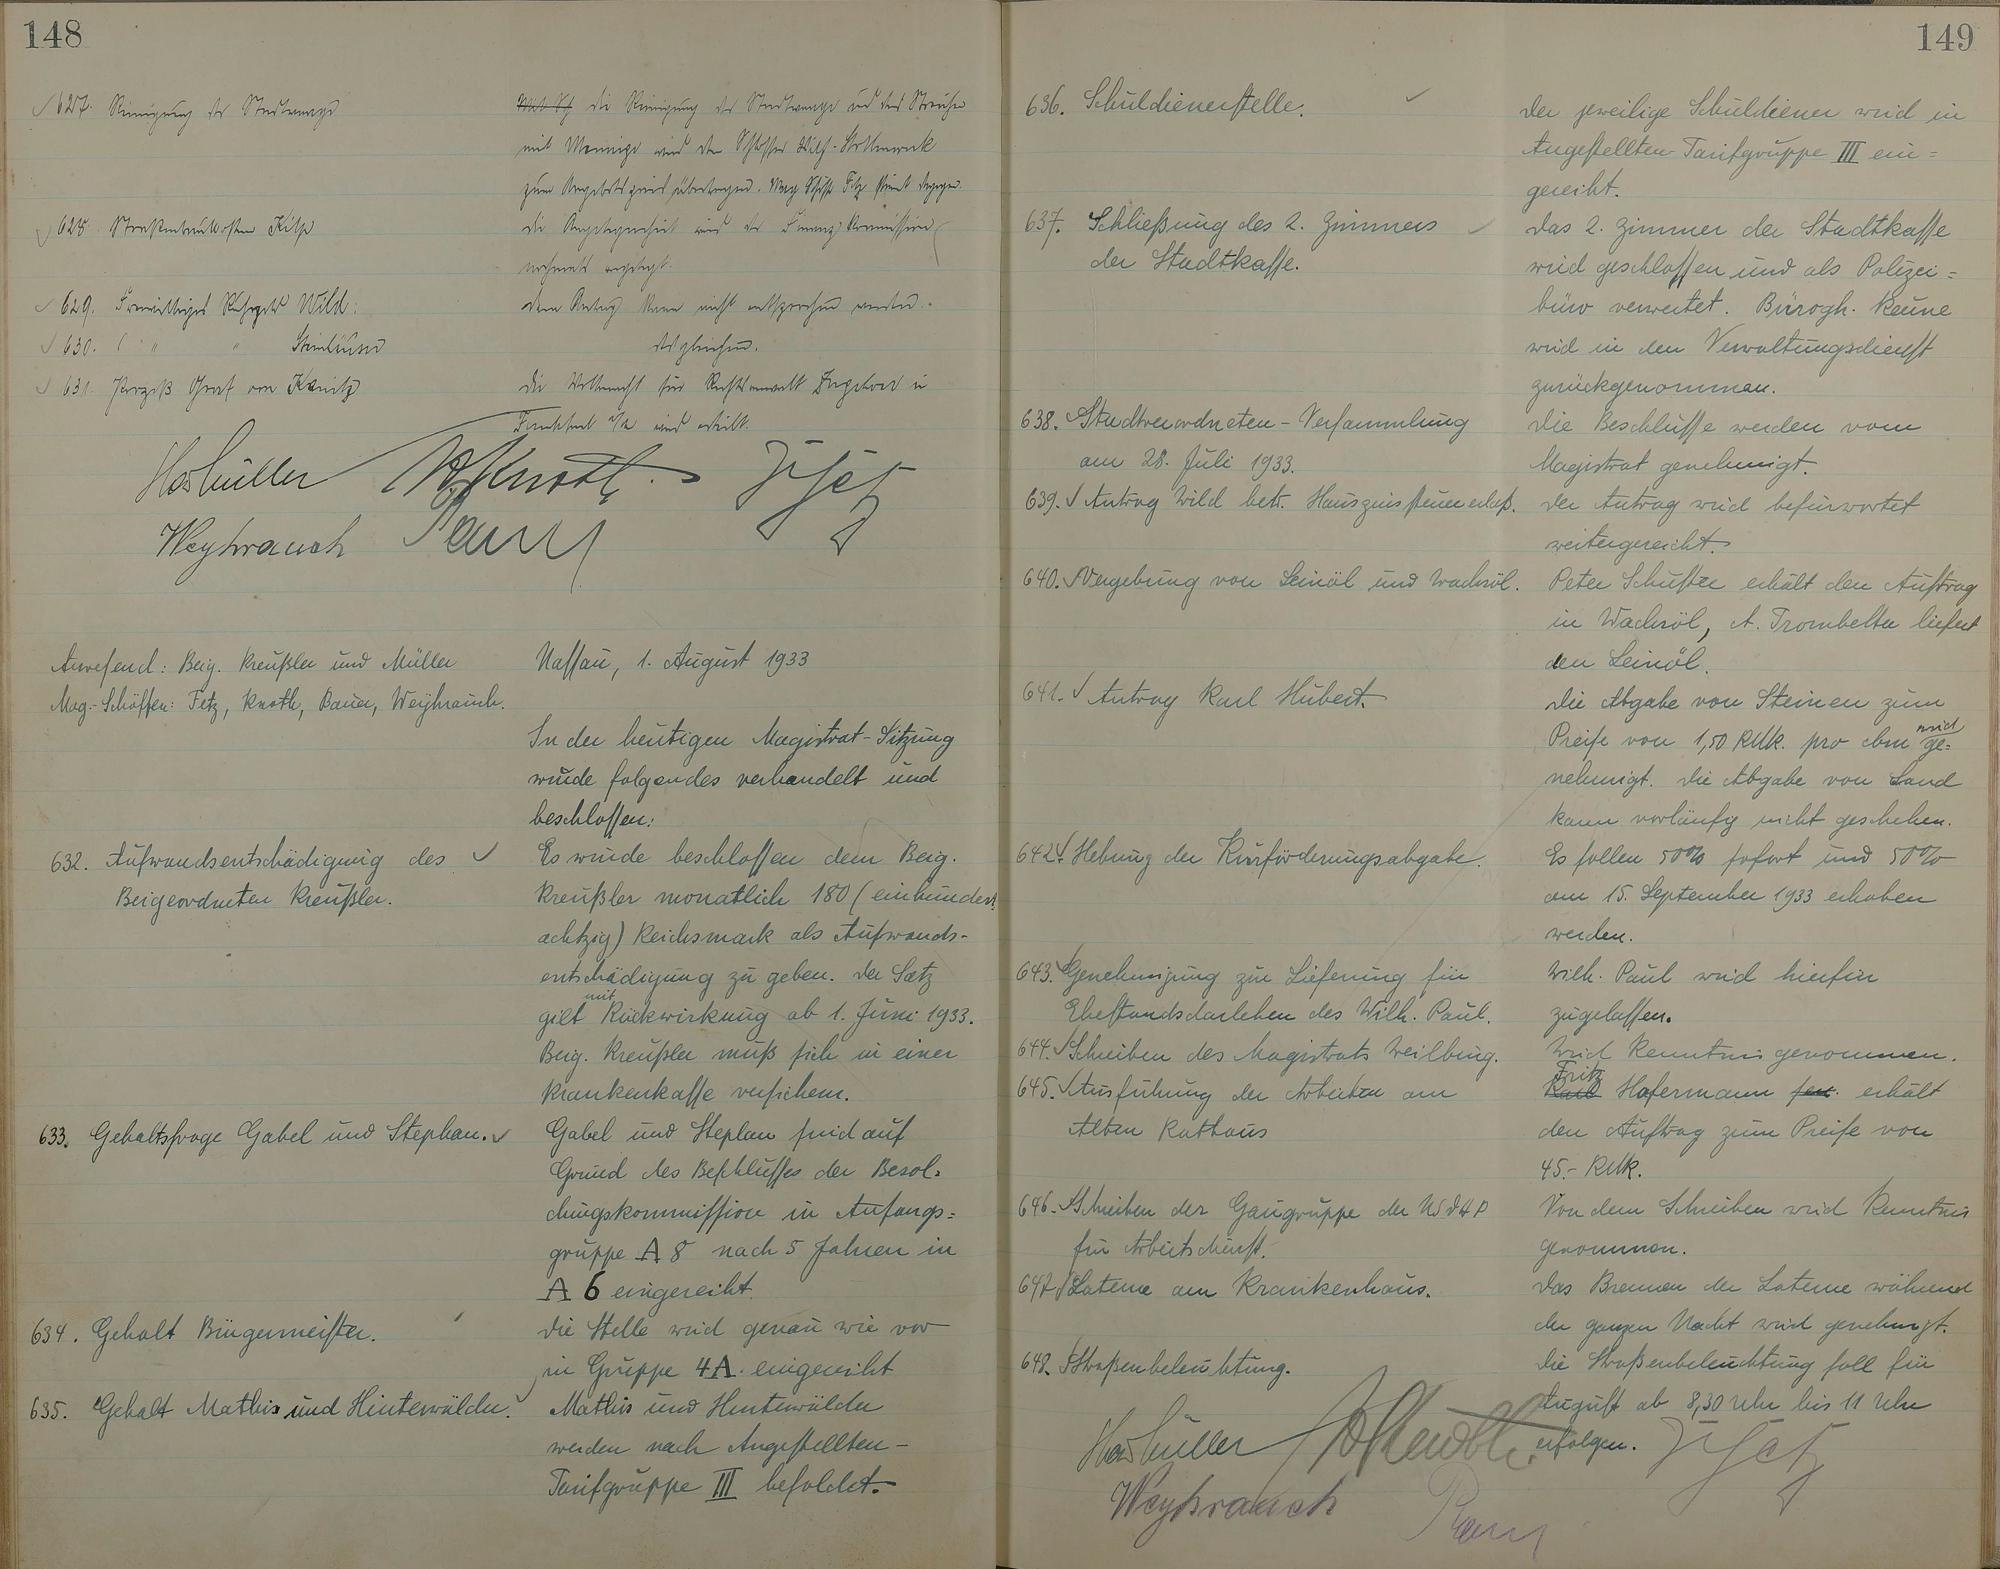 148
627. Reinigung der Stadtwaage
die Reinigung der Stadtwaage und das Streichen
mit Mennige wird dem Schlosser Wilh.
zum Angebotspreis übertragen. Mag. Schöff. Fetz stimmt dagegen.
628. Straßenbaukosten
die Angelegenheit wird der Finanz-Kommission
nochmals vorgelegt.
629. Freiwilliges Wild:
dem Antrag kann nicht entsprochen werden.
630. " "
desgleichen.
631. Prozeß Graf von Kanitz
die Vollmacht für Rechtsanwalt in
Frankfurt a/M wird erteilt.
Knoth Fetz
Weyhrauch Bauer
Anwesend: Beig. Kreußler und Müller
Mag.-Schöffen: Fetz, Knoth, Bauer, Weyhrauch.
Nassau, 1. August 1933
In der heutigen Magistrat-Sitzung
wurde folgendes verhandelt und
beschlossen:
632. Aufwandsentschädigung des
Beigeordneten Kreußler.
Es wurde beschlossen dem Beig.
Kreußler monatlich 180 (einhundert
achtzig) Reichsmark als Aufwands-
entschädigung zu geben. Der Satz
gilt mit Rückwirkung ab 1. Juni 1933.
Beig. Kreußler muß sich in einer
Krankenkasse versichern.
633. Gehaltsfrage Gabel und Stephan.
Gabel und Stephan sind auf
Grund des Beschlusses der Besol=
dungskommission in Anfangs=
gruppe A 8 nach 5 Jahren in
A 6 eingereiht.
634. Gehalt Bürgermeister.
Die Stelle wird genau wie vor
in Gruppe 4A eingereiht
635. Gehalt Mathis und Hinterwälder.
Mathis und Hinterwälder
werden nach Angestellten-
Tarifgruppe III besoldet.
149
636. Schuldienerstelle.
Der jeweilige Schuldiener wird in
Angestellten Tarifgruppe III ein=
gereiht.
637. Schließung des 2. Zimmers
der Stadtkasse.
Das 2. Zimmer der Stadtkasse
wird geschlossen und als Polizei=
büro verwertet. Bürogh. Keune
wird in den Verwaltungsdienst
zurückgenommen.
638. Stadtverordneten-Versammlung
am 28. Juli 1933.
Die Beschlüsse werden vom
Magistrat genehmigt.
639. Antrag Wild betr. Hauszinssteuererlaß.
Der Antrag wird befürwortet
weitergereicht.
640. Vergebung von Leinöl und Wachsöl.
Peter Schuster erhält den Auftrag
in Wachsöl, A. Trombetta liefert
den Leinöl.
641. Antrag Karl Hubert.
Die Abgabe von Steinen zum
Preise von 1,50 RMk. pro cbm wird ge=
nehmigt. Die Abgabe von Sand
kann vorläufig nicht geschehen.
642. Hebung der Kurförderungsabgabe.
Es sollen 50% sofort und 50%
am 15. September 1933 erhoben
werden.
643. Genehmigung zur Lieferung für
Ehestandsdarlehen des Wilh. Paul.
Wilh. Paul wird hierfür
zugelassen.
644. Schreiben des Magistrats Weilburg.
Wird Kenntnis genommen.
645. Ausführung der Arbeiten am
Alten Rathaus
Fritz
Karl Hafermann erhält
den Auftrag zum Preise von
45.- RMk.
646. Schreiben der Gaugruppe der NSDAP
für Arbeitsdienst.
Von dem Schreiben wird Kenntnis
genommen.
647. Laterne am Krankenhaus.
Das Brennen der Laterne während
der ganzen Nacht wird genehmigt.
648. Straßenbeleuchtung.
Die Straßenbeleuchtung soll für
August ab 8,30 Uhr bis 11 Uhr
erfolgen.
Knoth Fetz
Weyhrauch Bauer